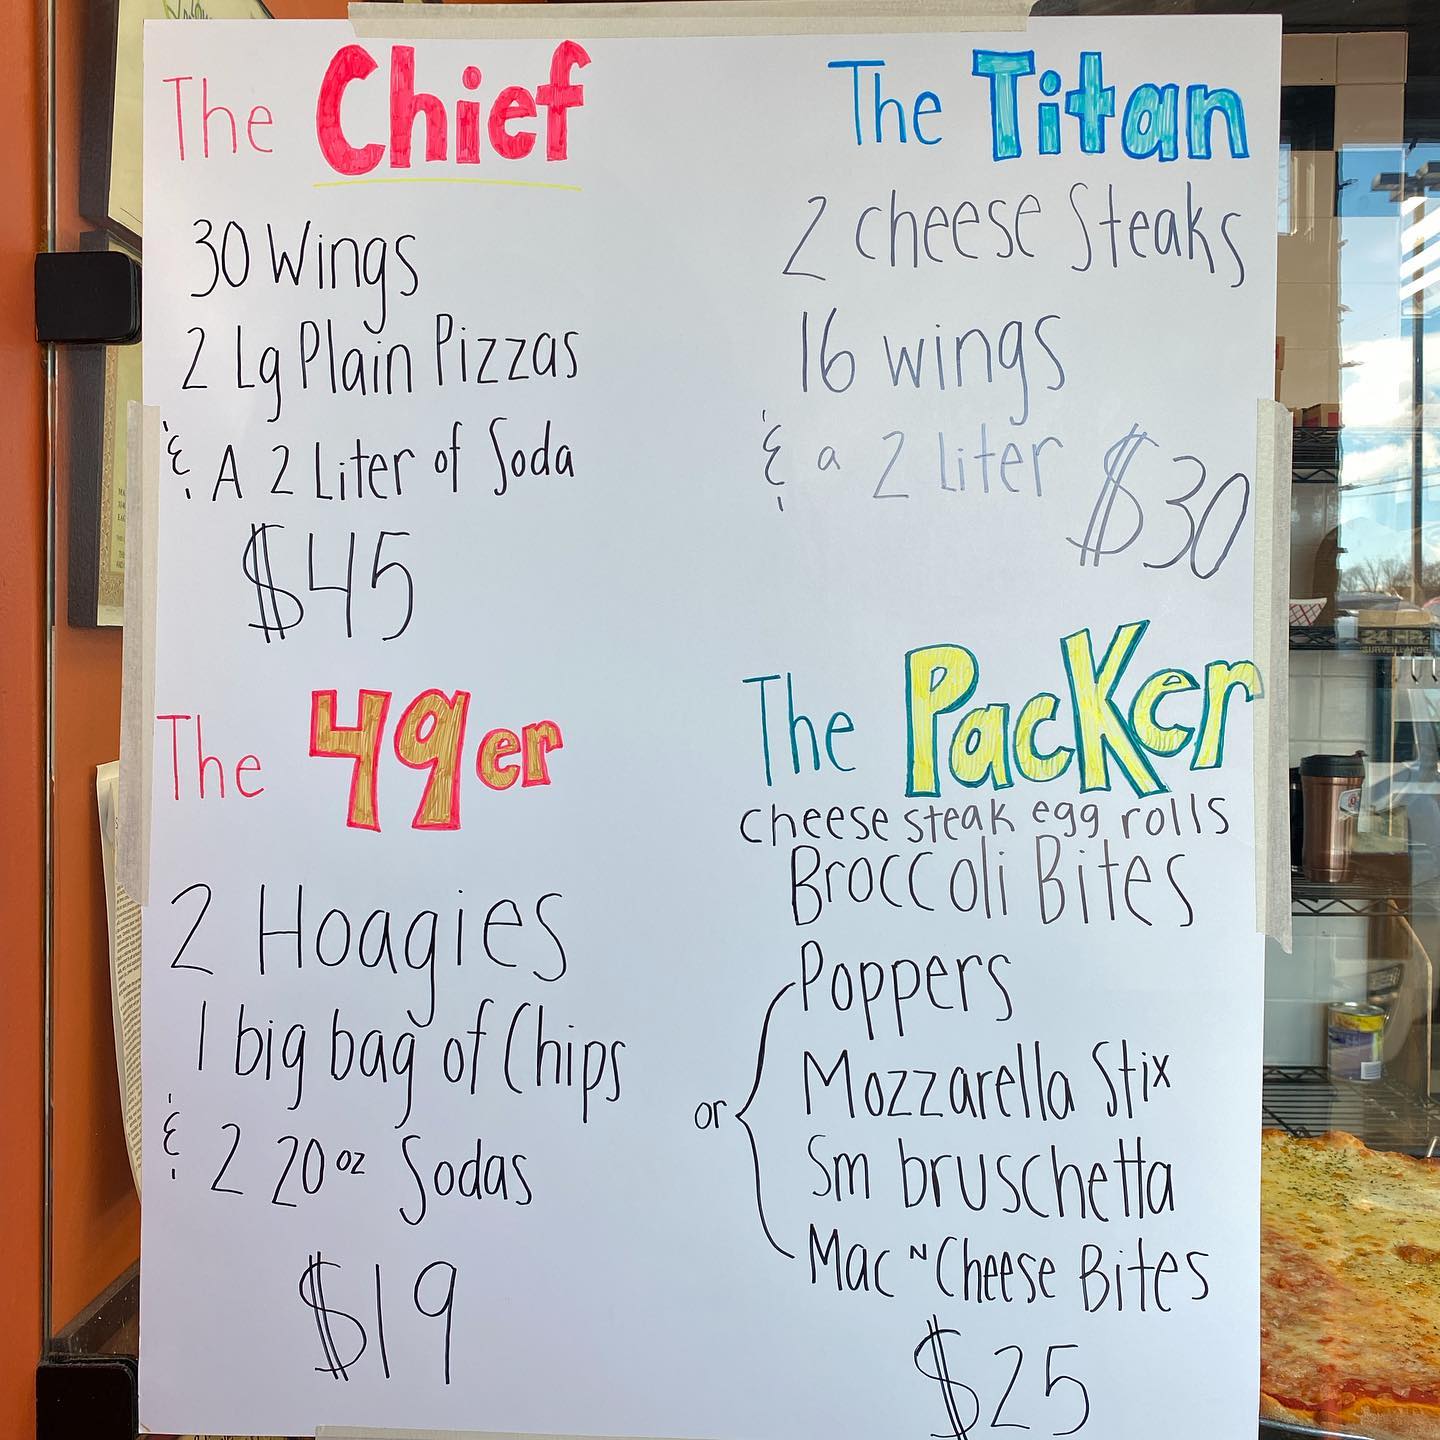 The Chief
30 Wings
2 Lg Plain Pizzas
& A 2 Liter of Soda
$45
The Titan
2 cheese Steaks
16 wings
& a 2 liter $30
The 49er
2 Hoagies
1 big bag of Chips
& 2 20oz Sodas
$19
The Packer
cheese steak egg rolls
Broccoli Bites
Poppers
or
Mozzarella Stix
Sm bruschetta
Mac N Cheese Bites
$25
SURVEILLANCE